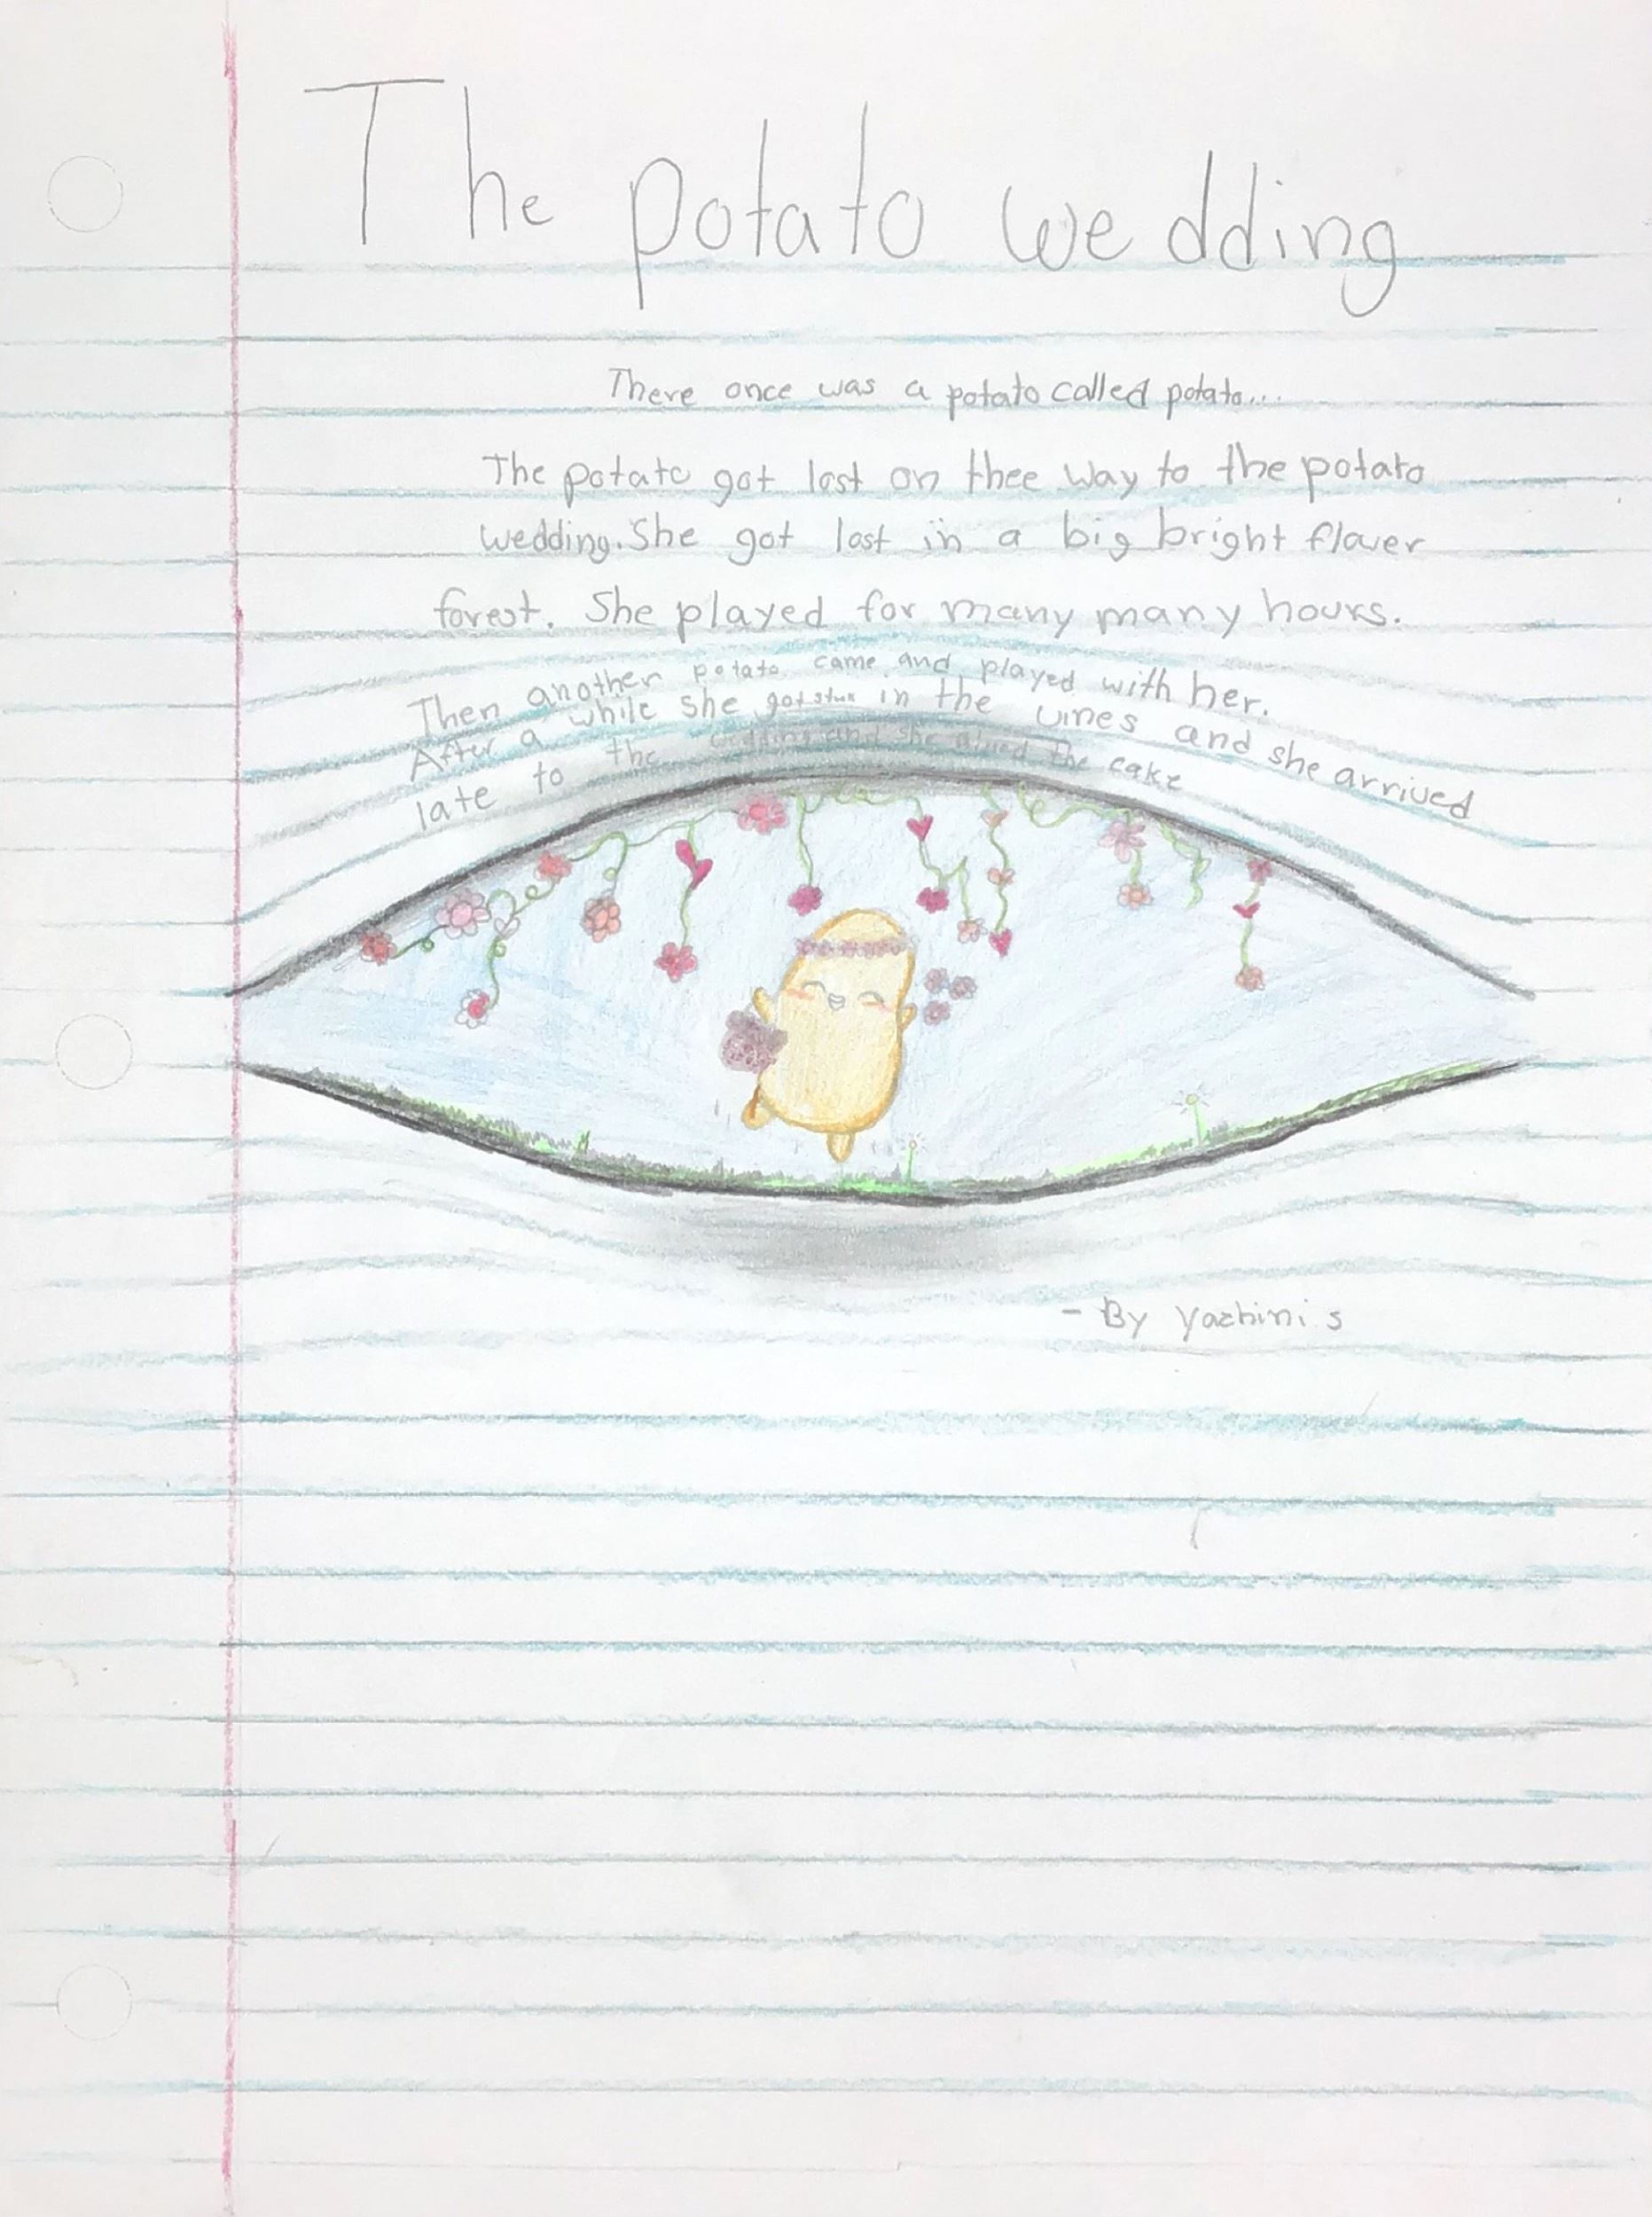 The potato wedding
There once was a potato called potato...
The potato got lost on thee way to the potato
wedding. She got lost in a big bright flower
forest. She played for many many hours.
Then another potato came and played with her.
After a while she got stuk in the vines and she arrived
late to the wedding and she the cake
- By Yazhini.s